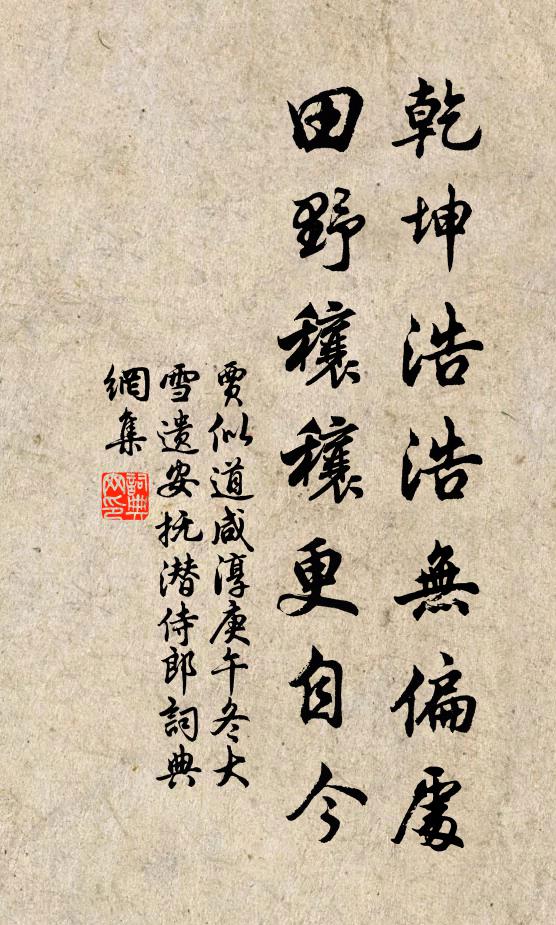 乾坤浩浩無偏處
田野穰穰更自今
賈似道咸淳庚午冬大
雪遺安抚潜侍郎詞典
網集
詞典
网印